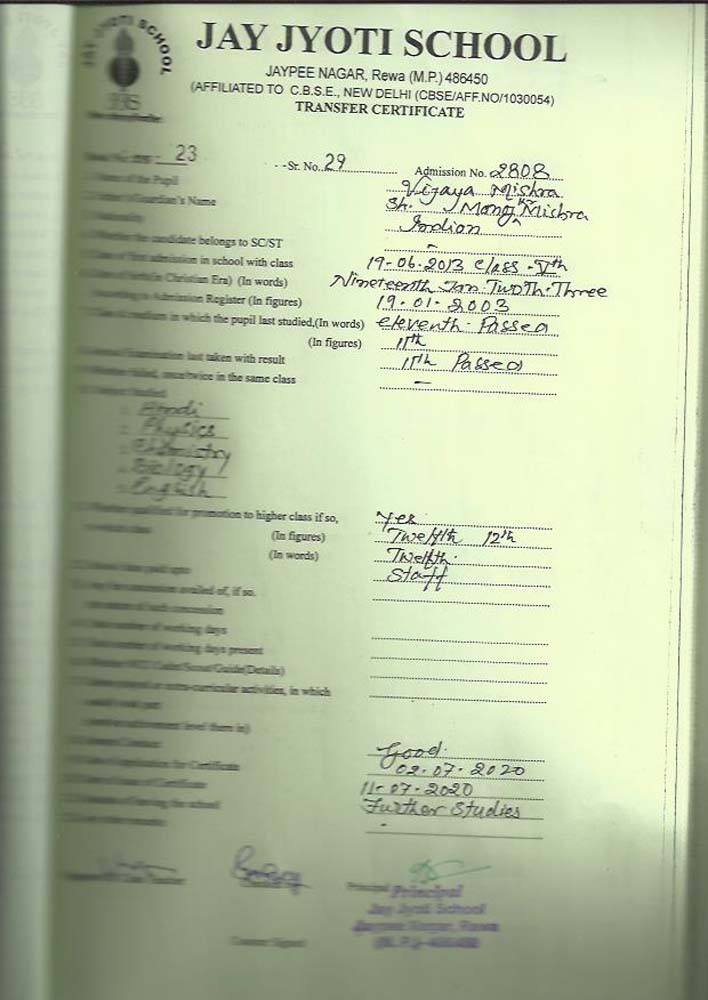 JAY JYOTI SCHOOL
JAY JYOTI SCHOOL
JAYPEE NAGAR, Rewa (M.P.) 486450
(AFFILIATED TO C.B.S.E., NEW DELHI (CBSE/AFF.NO/1030054)
TRANSFER CERTIFICATE
23 Sr. No. 29 Admission No. 2808
Name of the Pupil Vijaya Mishra
Guardian's Name Sh. Manoj Kr Mishra
Indian
Whether the candidate belongs to SC/ST -
first admission in school with class 19-06-2013 class-Vth
(in Christian Era) (In words) Nineteenth Jan Two Th. Three
Admission Register (In figures) 19-01-2003
in which the pupil last studied,(In words) eleventh Passed
(In figures) 11th
last taken with result 11th Passed
once/twice in the same class -
Hindi
Physics
Chemistry
Biology
English
Whether qualified for promotion to higher class if so, Yes
(In figures) Twelfth 12th
(In words) Twelfth
availed of, if so. Staff
concession
number of working days
number of working days present
NCC Cadet/Scout/Guide(Details)
extra-curricular activities, in which
achievement level there in)
Good
Certificate 02-07-2020
Certificate 11-07-2020
leaving the school Further Studies
-
Principal
Principal
Jay Jyoti School
Jaypee Nagar, Rewa
(M.P.)-486450
Counter Signed